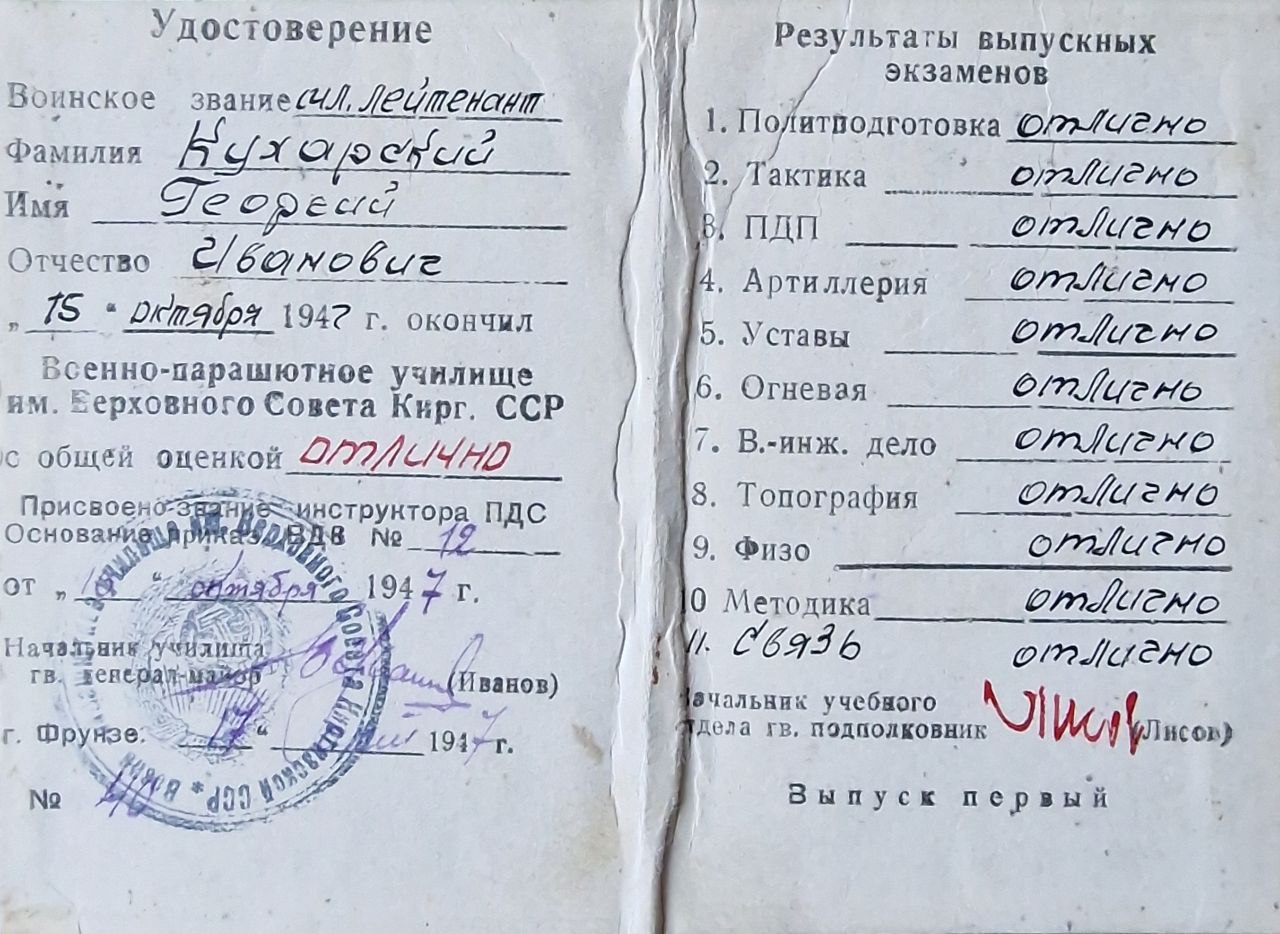 Удостоверение
Воинское звание мл. лейтенант
Фамилия Кухарский
Имя Георгий
Отчество Иванович
„ 15 " октября 1947 г. окончил
Военно-парашютное училище
им. Верховного Совета Кирг. ССР
с общей оценкой отлично
Присвоено звание инструктора ПДС
Основание приказ ВДВ № 12
от „ " октября 1947 г.
Начальник училища
гв. генерал-майор (Иванов)
г. Фрунзе. 17 " 1947 г.
№
Верховного Совета Киргизской ССР
Результаты выпускных
экзаменов
1. Политподготовка отлично
2. Тактика отлично
3. ПДП отлично
4. Артиллерия отлично
5. Уставы отлично
6. Огневая отлично
7. В.-инж. дело отлично
8. Топография отлично
9. Физо отлично
10 Методика отлично
11. Связь отлично
Начальник учебного
отдела гв. подполковник (Лисов)
Выпуск первый